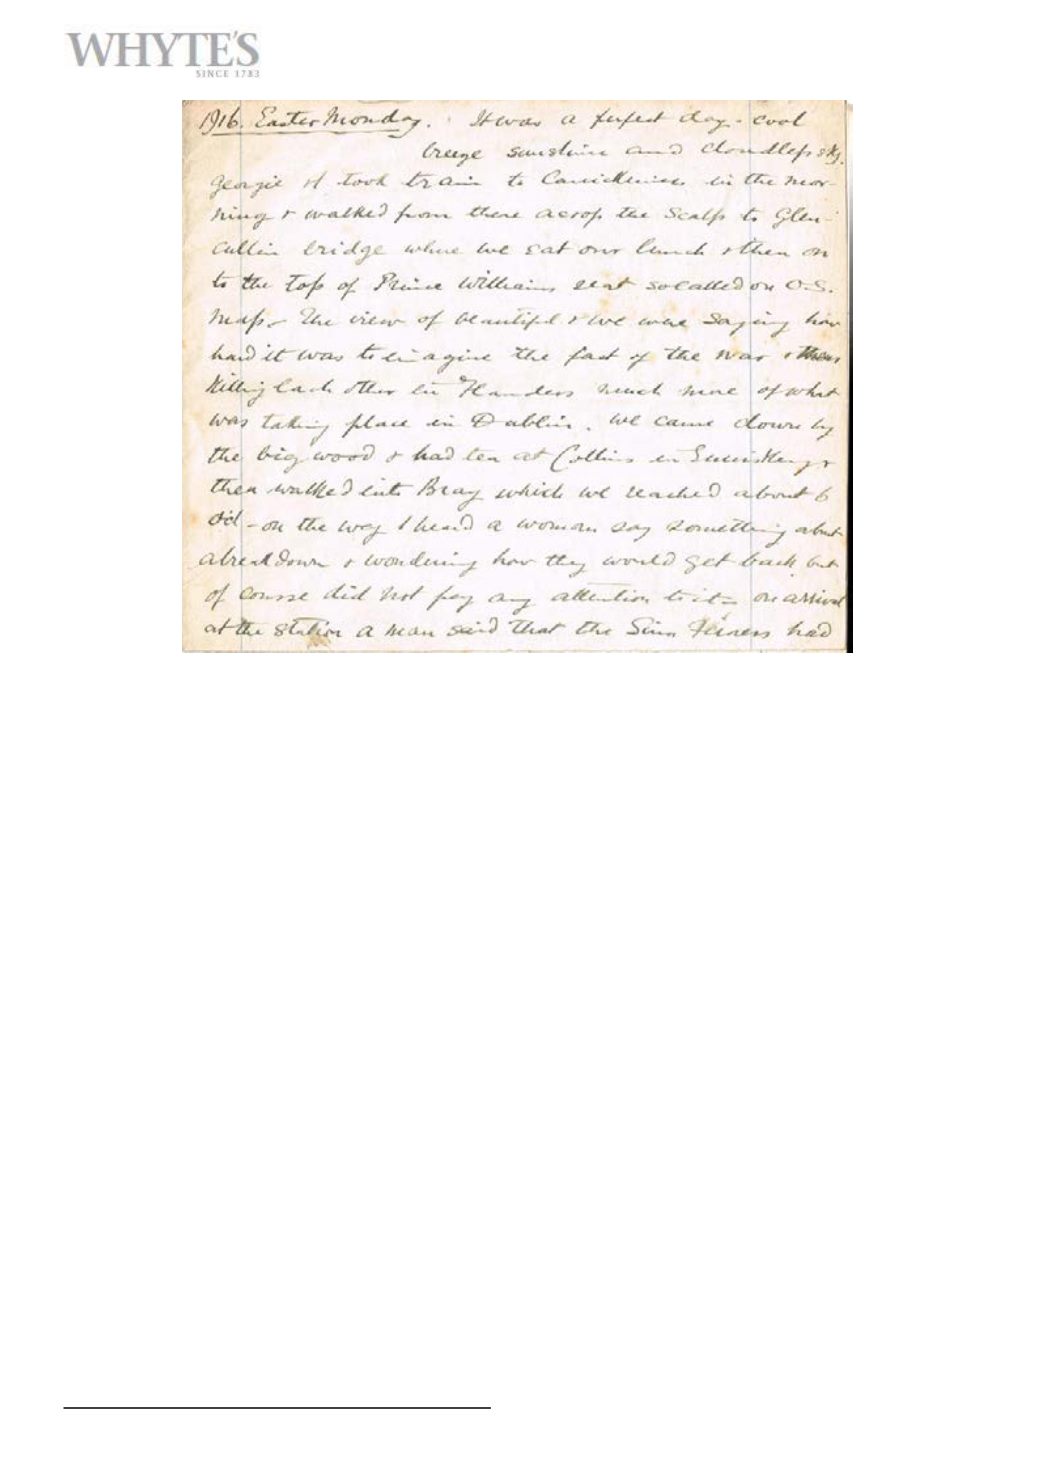 WHYTE'S
SINCE 1783
1916. Easter Monday. It was a perfect day - cool
breeze sunshine and cloudless sky.
Georgie & I took train to Carrickmines in the mor-
ning & walked from there across the Scalp to Glen-
cullin bridge where we eat our lunch & then on
to the top of Prince Williams seat so called on O.S.
maps - The view of beautiful & we were saying how
hard it was to imagine the fact of the war &
killing each other in Flanders much more of what
was taking place in Dublin. We came down by
the big wood & had tea at Collins in Enniskerry &
then walked into Bray which we reached about 6
ocl - on the way I heard a woman say something about
a breakdown & wondering how they would get back but
of course did not pay any attention to it - on arrival
at the station a man said that the Sinn Feiners had